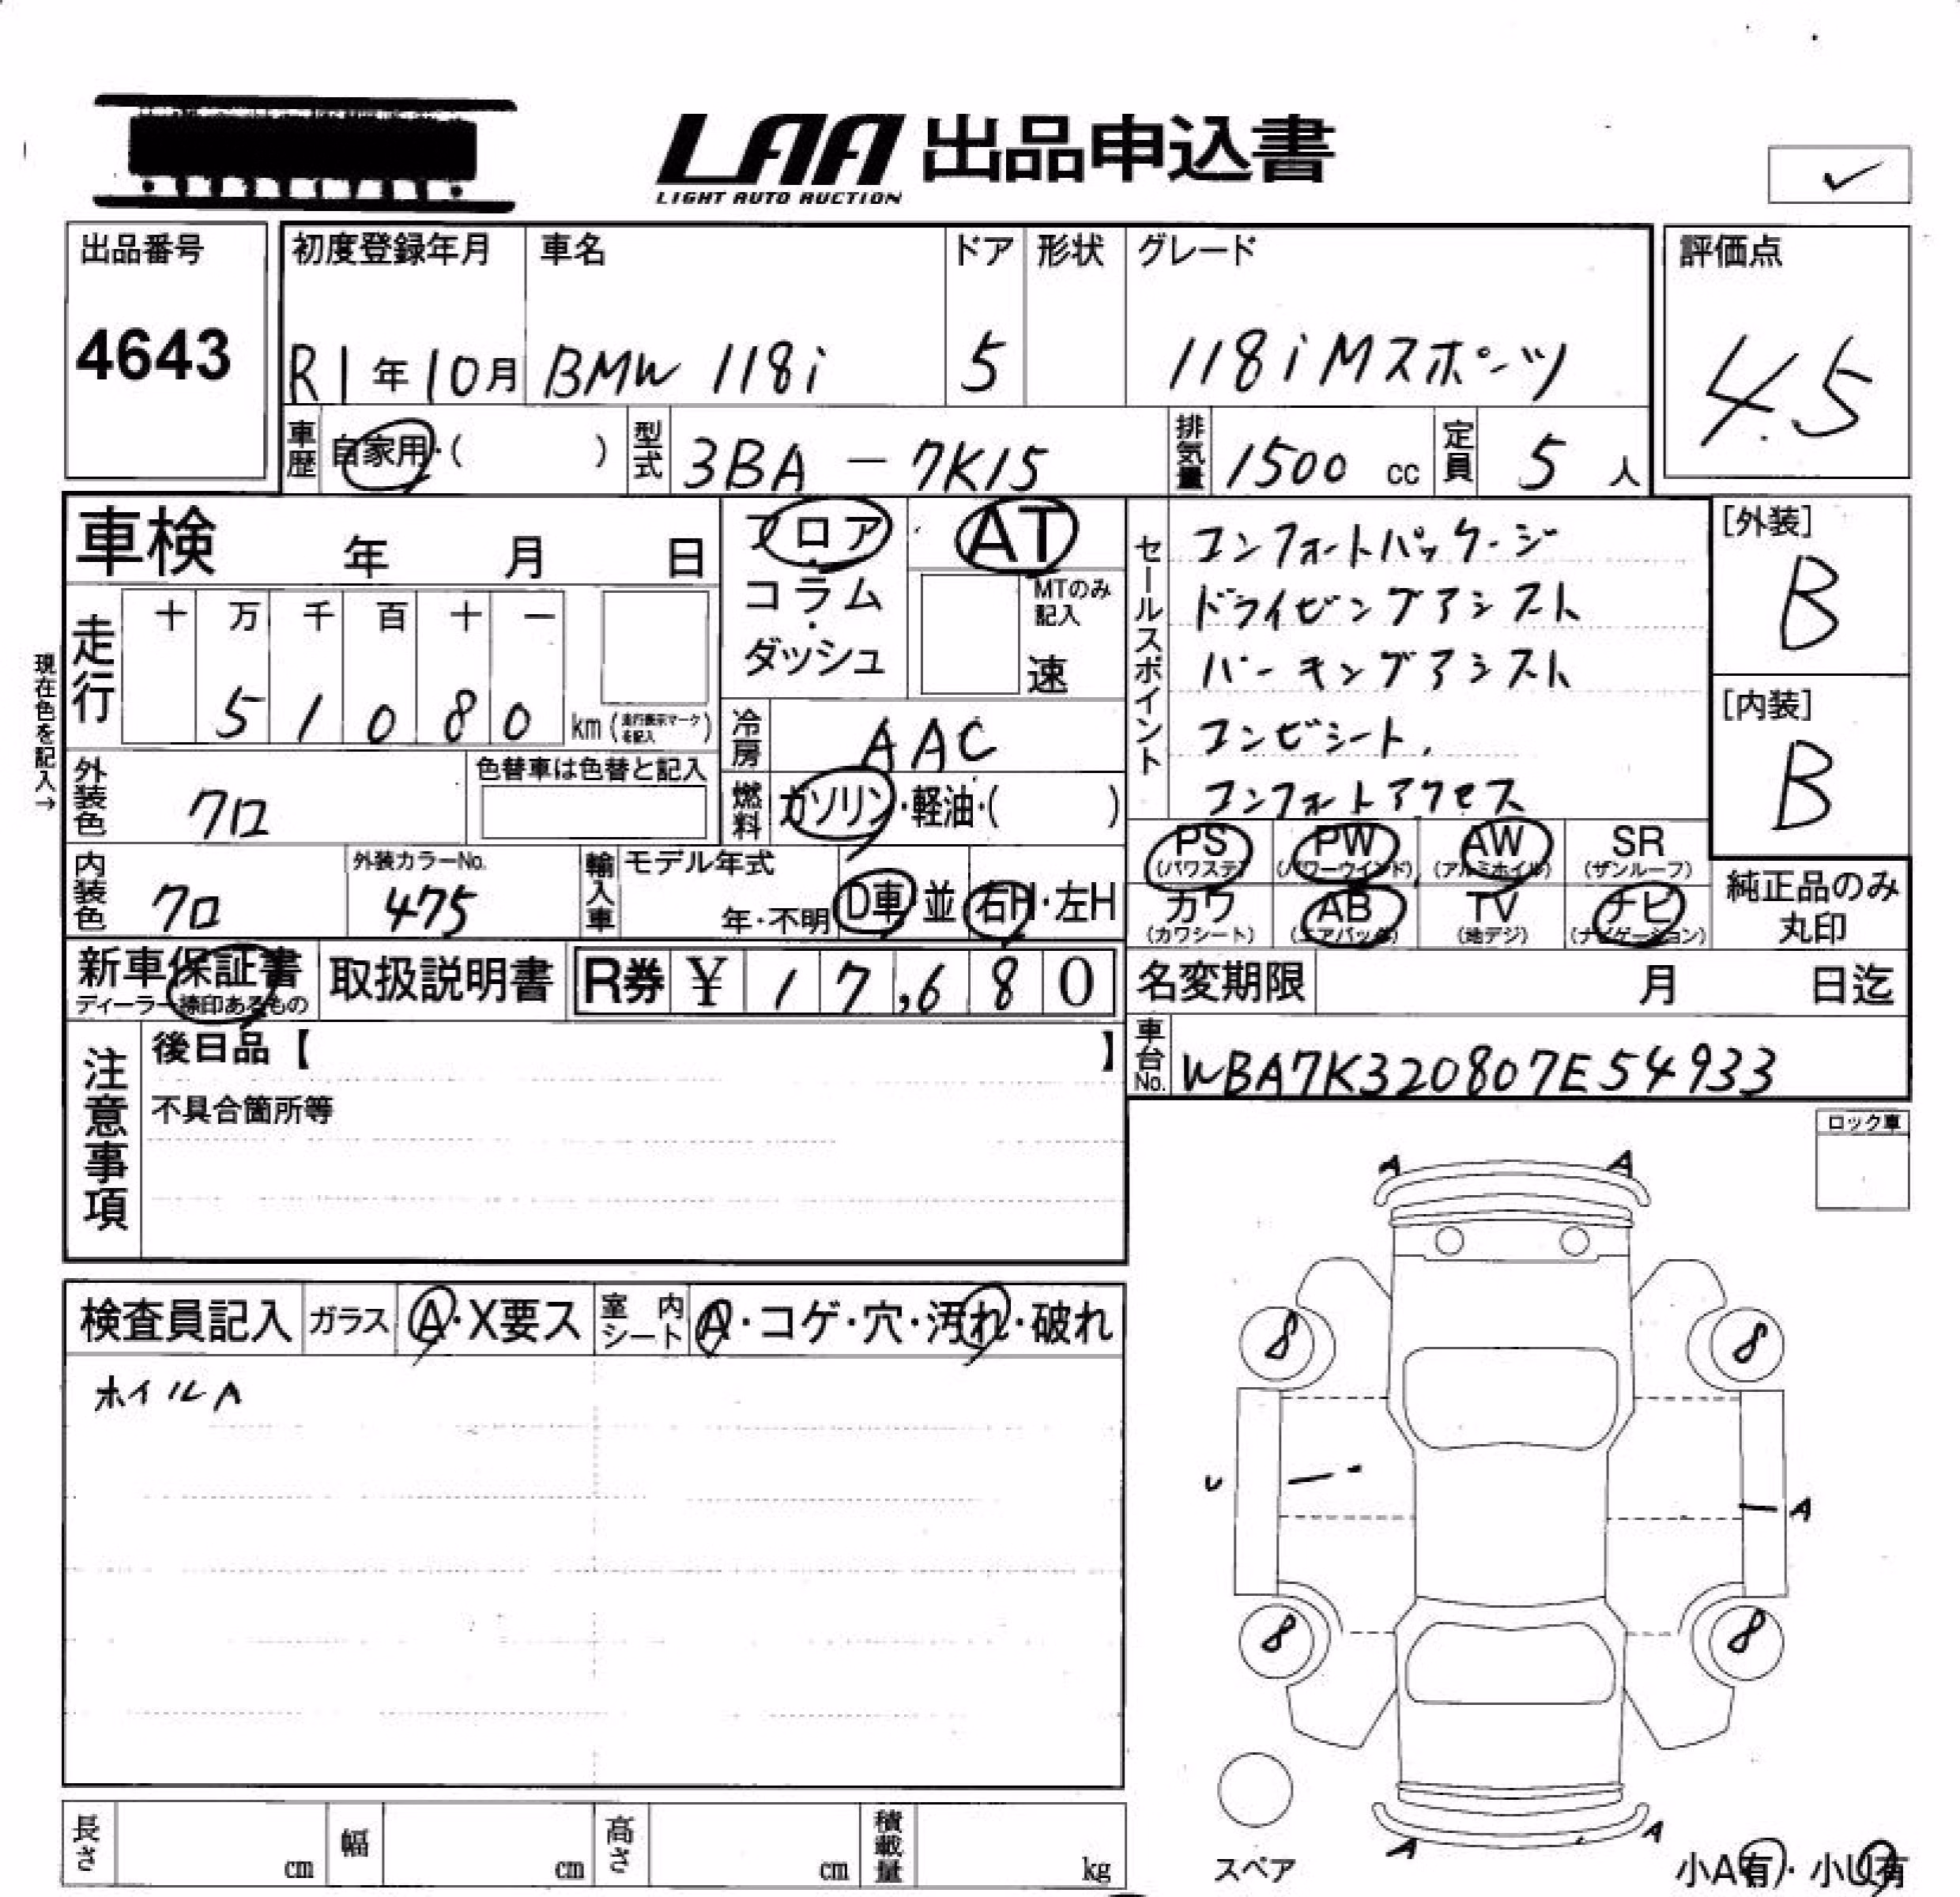 LAA 出品申込書
LIGHT AUTO AUCTION
✓
出品番号 初度登録年月 車名 ドア 形状 グレード 評価点
4643 R1年10月 BMW 118i 5 118i Mスポーツ 4.5
車歴 自家用・( ) 型式 3BA-7K15 排気量 1500 cc 定員 5 人
車検 年 月 日
フロア・コラム・ダッシュ
AT
MTのみ記入
速
セールスポイント
コンフォートパッケージ
ドライビングアシスト
パーキングアシスト
コンビシート.
コンフォートアクセス
[外装]
B
[内装]
B
現在色を記入→
走行 十 万 千 百 十 一
5 1 0 8 0 km (走行表示マークを記入)
冷房 AAC
外装色 クロ 色替車は色替と記入
燃料 ガソリン・軽油・( )
内装色 クロ 外装カラーNo. 475 輸入車 モデル年式 年・不明 D車 並 右H・左H
PS (パワステ) PW (パワーウインド) AW (アルミホイル) SR (サンルーフ)
カワ (カワシート) AB (エアバック) TV (地デジ) ナビ (ナビゲーション)
純正品のみ
丸印
新車保証書 取扱説明書 R券 ¥ 17,680
ディーラー捺印あるもの
名変期限 月 日迄
車台No. WBA7K320807E54933
注意事項
後日品【 】
不具合箇所等
ロック車
検査員記入 ガラス A・X要ス 室内シート A・コゲ・穴・汚れ・破れ
ホイルA
A A
8 8
U A
8 8
A A
スペア
小A有・小U有
長さ cm 幅 cm 高さ cm 積載量 kg